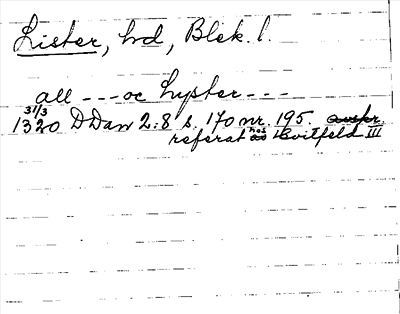 Lister, hd, Blek. l.
all --- oc Lyster ---
31/3
1320 DDan 2:8 s. 170 nr. 195. avskr.
referat hos Hvitfeld III